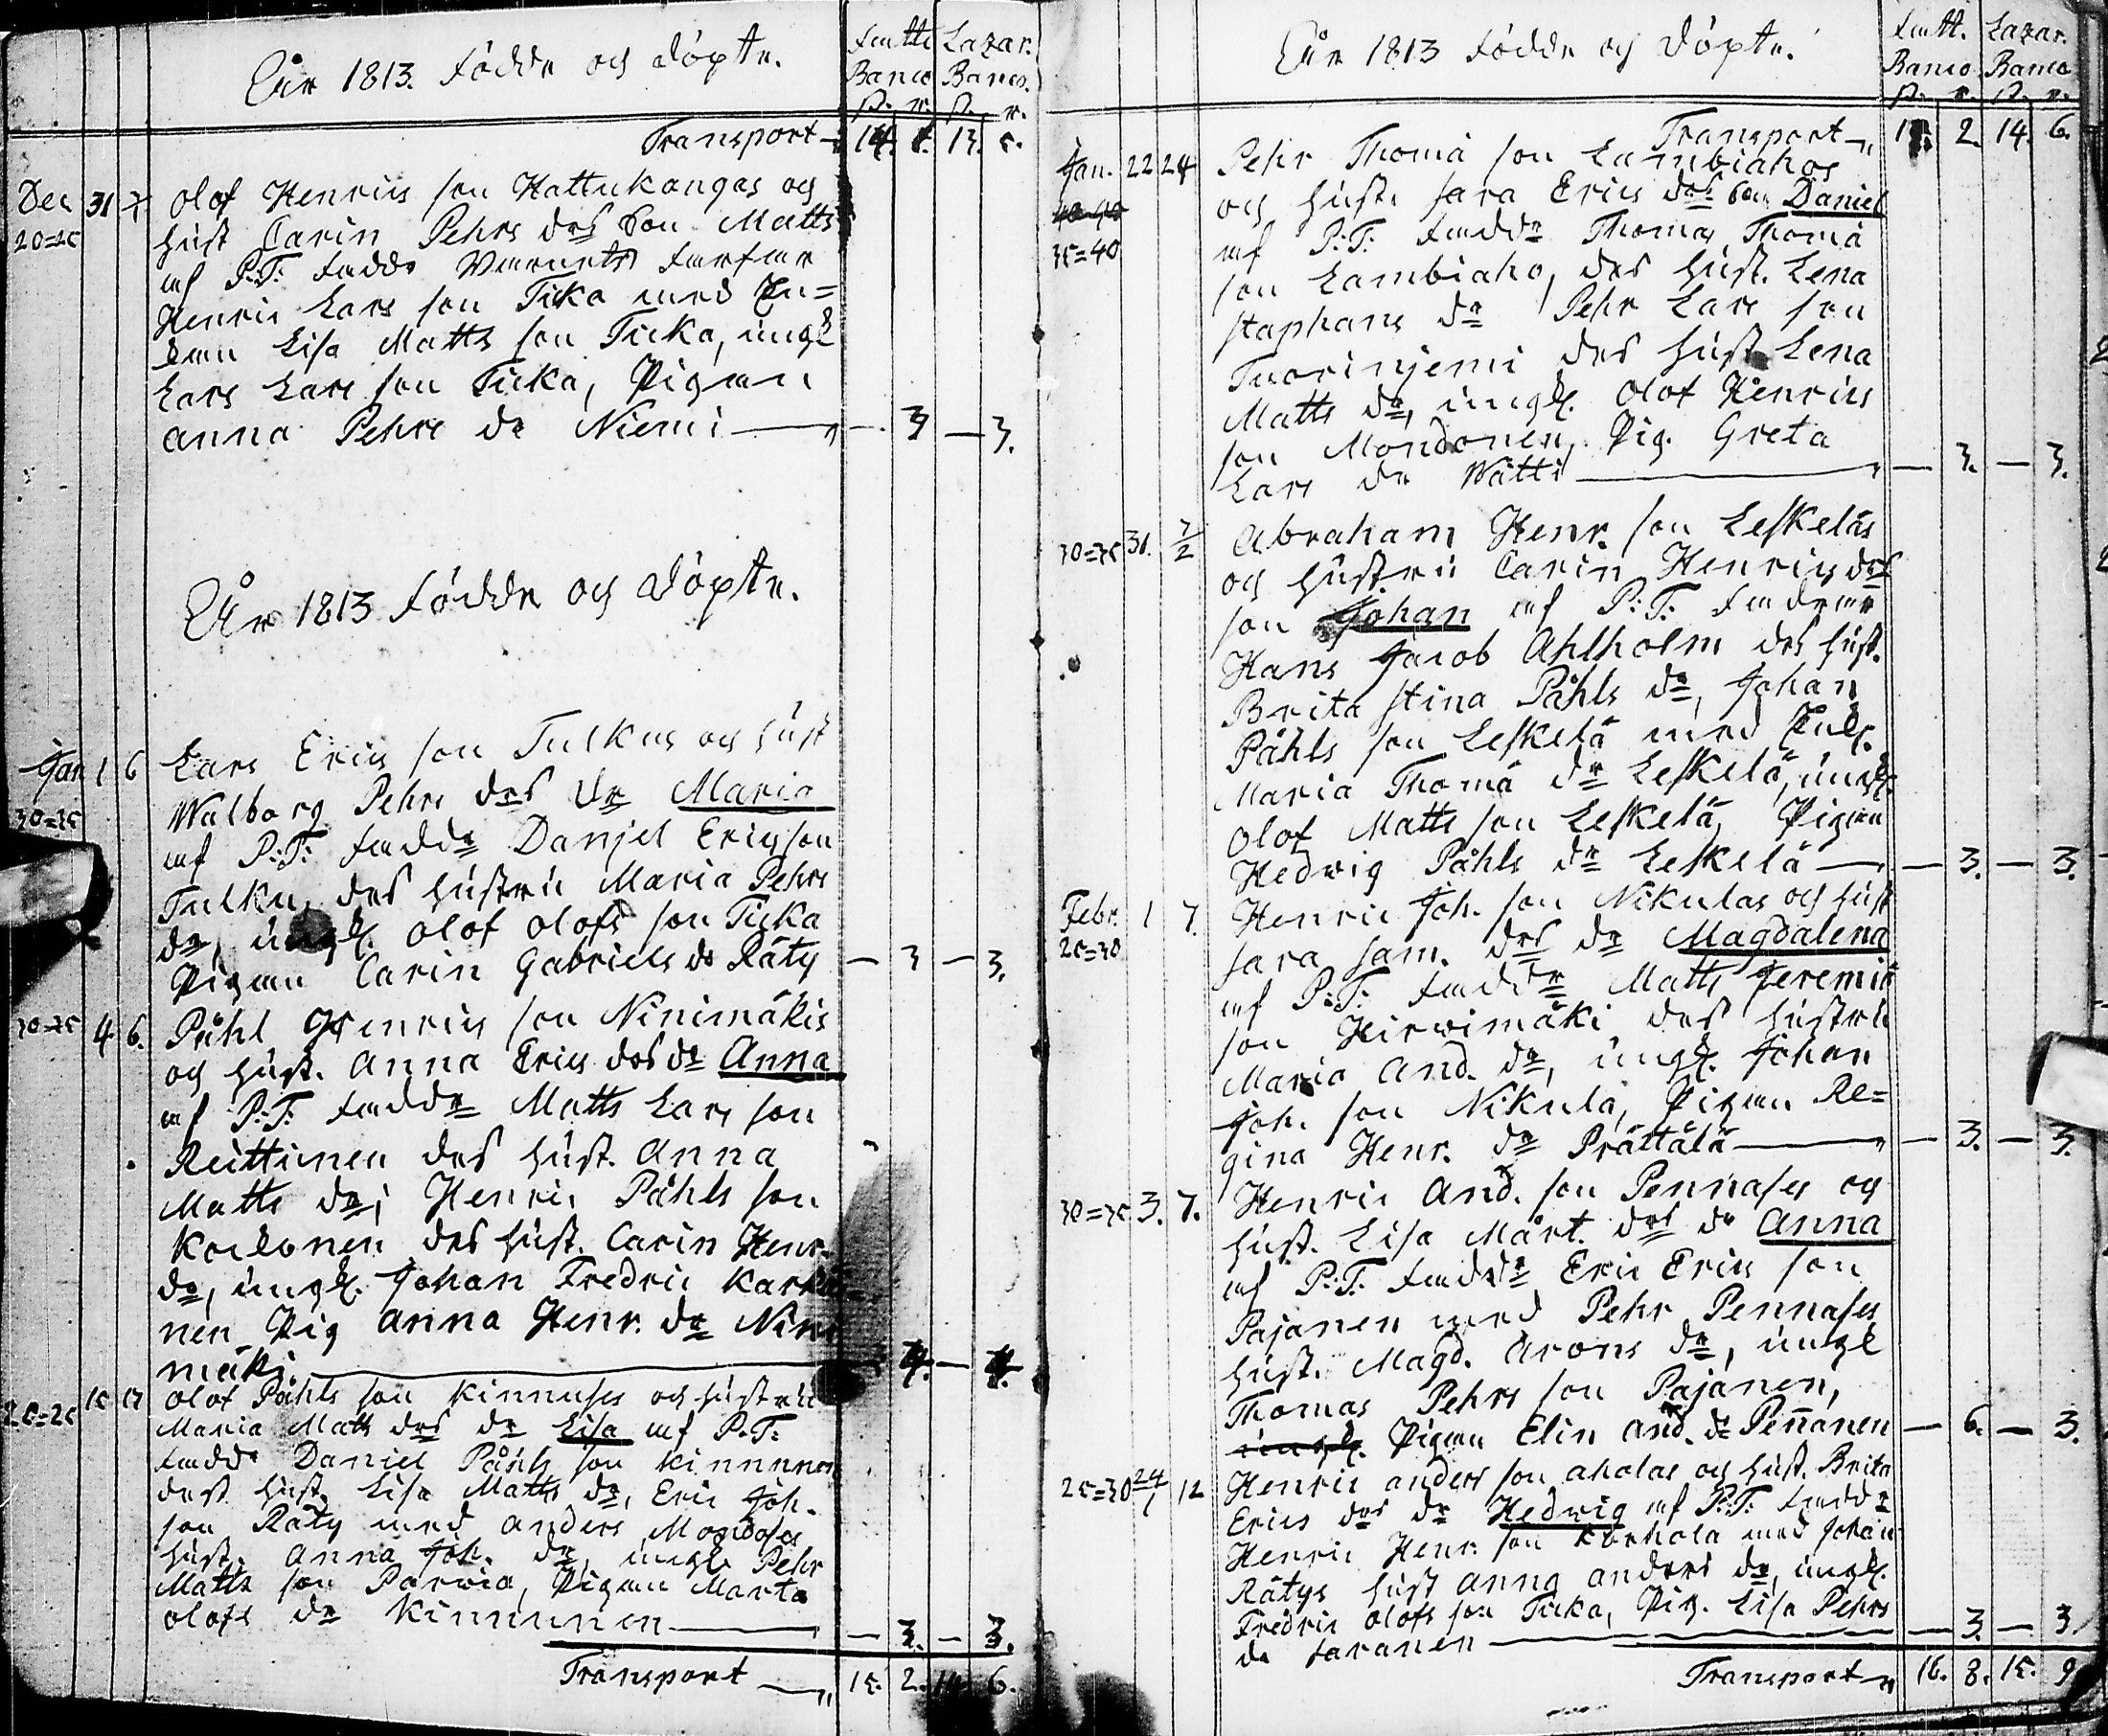 År 1813. födde och döpte.
Fatti Lazar.
Banco Banco.
Transport 14. 13.
Dec 31 Olof Henrics son Hattukangas och
20=25 hust Carin Pehrs drs Son Matts
af P:T: fadd.
Henric Lars son Ticka med En=
kan Lisa Matts son Ticka, ungk
Lars Lars son Ticka, Pigan
Anna Pehrs dr Niemi — 3 — 3.
År 1813 födde och döpte.
Jan 1 6 Lars Erics son Tulkus och hust
30=35 Walborg Pehrs drs dr Maria
af P:T: faddr Daniel Ericsson
Tulku, des hustru Maria Pehrs
dr, ungk. Olof Olofs son Ticka
Pigan Carin Gabriels dr Räty — 3 — 3.
30=35 4 6. Påhl Henrics son Ninimäkis
och hust. Anna Erics drs dr Anna
af P:T: faddr Matts Lars son
Reittunen des hust. Anna
Matts dr; Henric Påhls son
des hust. Carin Henr.
dr, ungk. Johan Fredric
nen Pig Anna Henr. dr Nini
mäki
Olof Påhls son Kinnuses och hustru
Maria Matts drs dr Lisa af P.T.
fadd. Daniel Påhls son Kinnunen
des hust. Lisa Matts dr, Eric Joh.
son Räty med Anders
hust. Anna Joh. dr, ungk Pehr
Matts son Parvia, Pigan Marta
Olofs dr Kinnunen — 3. — 3.
Transport 15. 2. 14. 6.
År 1813 födde och döpte.
Fatt. Lazar.
Banco Banco
Transport 15. 2. 14. 6.
Jan. 22 24 Pehr Thomä son Lambiahos
och hust. Sara Erics drs Son Daniel
35=40 af P:T: faddr Thomas Thomä
son Lambiaho, des hust. Lena
Staphans dr Pehr Lars son
Tuorinjemi des hust. Lena
Matts dr, ungk. Olof Henrics
son Mondonen, Pig. Greta
Lars dr Wätti — 3. — 3.
30=35 31. 7/2 Abraham Henr. son Leskeläs
och hustru Carin Henrics drs
son Johan af P:T: faddrar
Hans Jacob Ahlholm des hust.
Brita Stina Påhls dr, Johan
Påhls son Leskelä med
Maria Thomä dr Leskelä, ungk.
Olof Matts son Leskelä, Pigan
Hedwig Påhls dr Leskelä — 3. — 3.
Febr. 1 7. Henric Joh. son Nikulas och hust
25=30 Sara Sam. drs dr Magdalena
af P:T: faddr Matts Jeremiä
son Hirwimäki des hustru
Maria And. dr, ungk. Johan
Joh. son Nikula, Pigan Re=
gina Henr. dr Prättälä — 3. — 3.
30=35 3. 7. Henric And. son Pennases och
hust. Lisa Märt. drs dr Anna
af P:T: faddr Eric Erics son
Pajanen med Pehr Pennases
hust. Magd. Arons dr, ungk
Thomas Pehrs son Pajanen,
ungk. Pigan Elin And. dr Pennanen — 6. — 3.
25=30 24/1 12 Henric Anders son Aholas och hust. Brita
Erics drs dr Hedwig af P:T: faddr
Henric Henr. son Korhola med Johan
Rätys hust Anna Anders dr, ungk.
Fredric Olofs son Ticka, Pig. Lisa Pehrs
dr — 3. — 3
Transport 16. 8. 15. 9